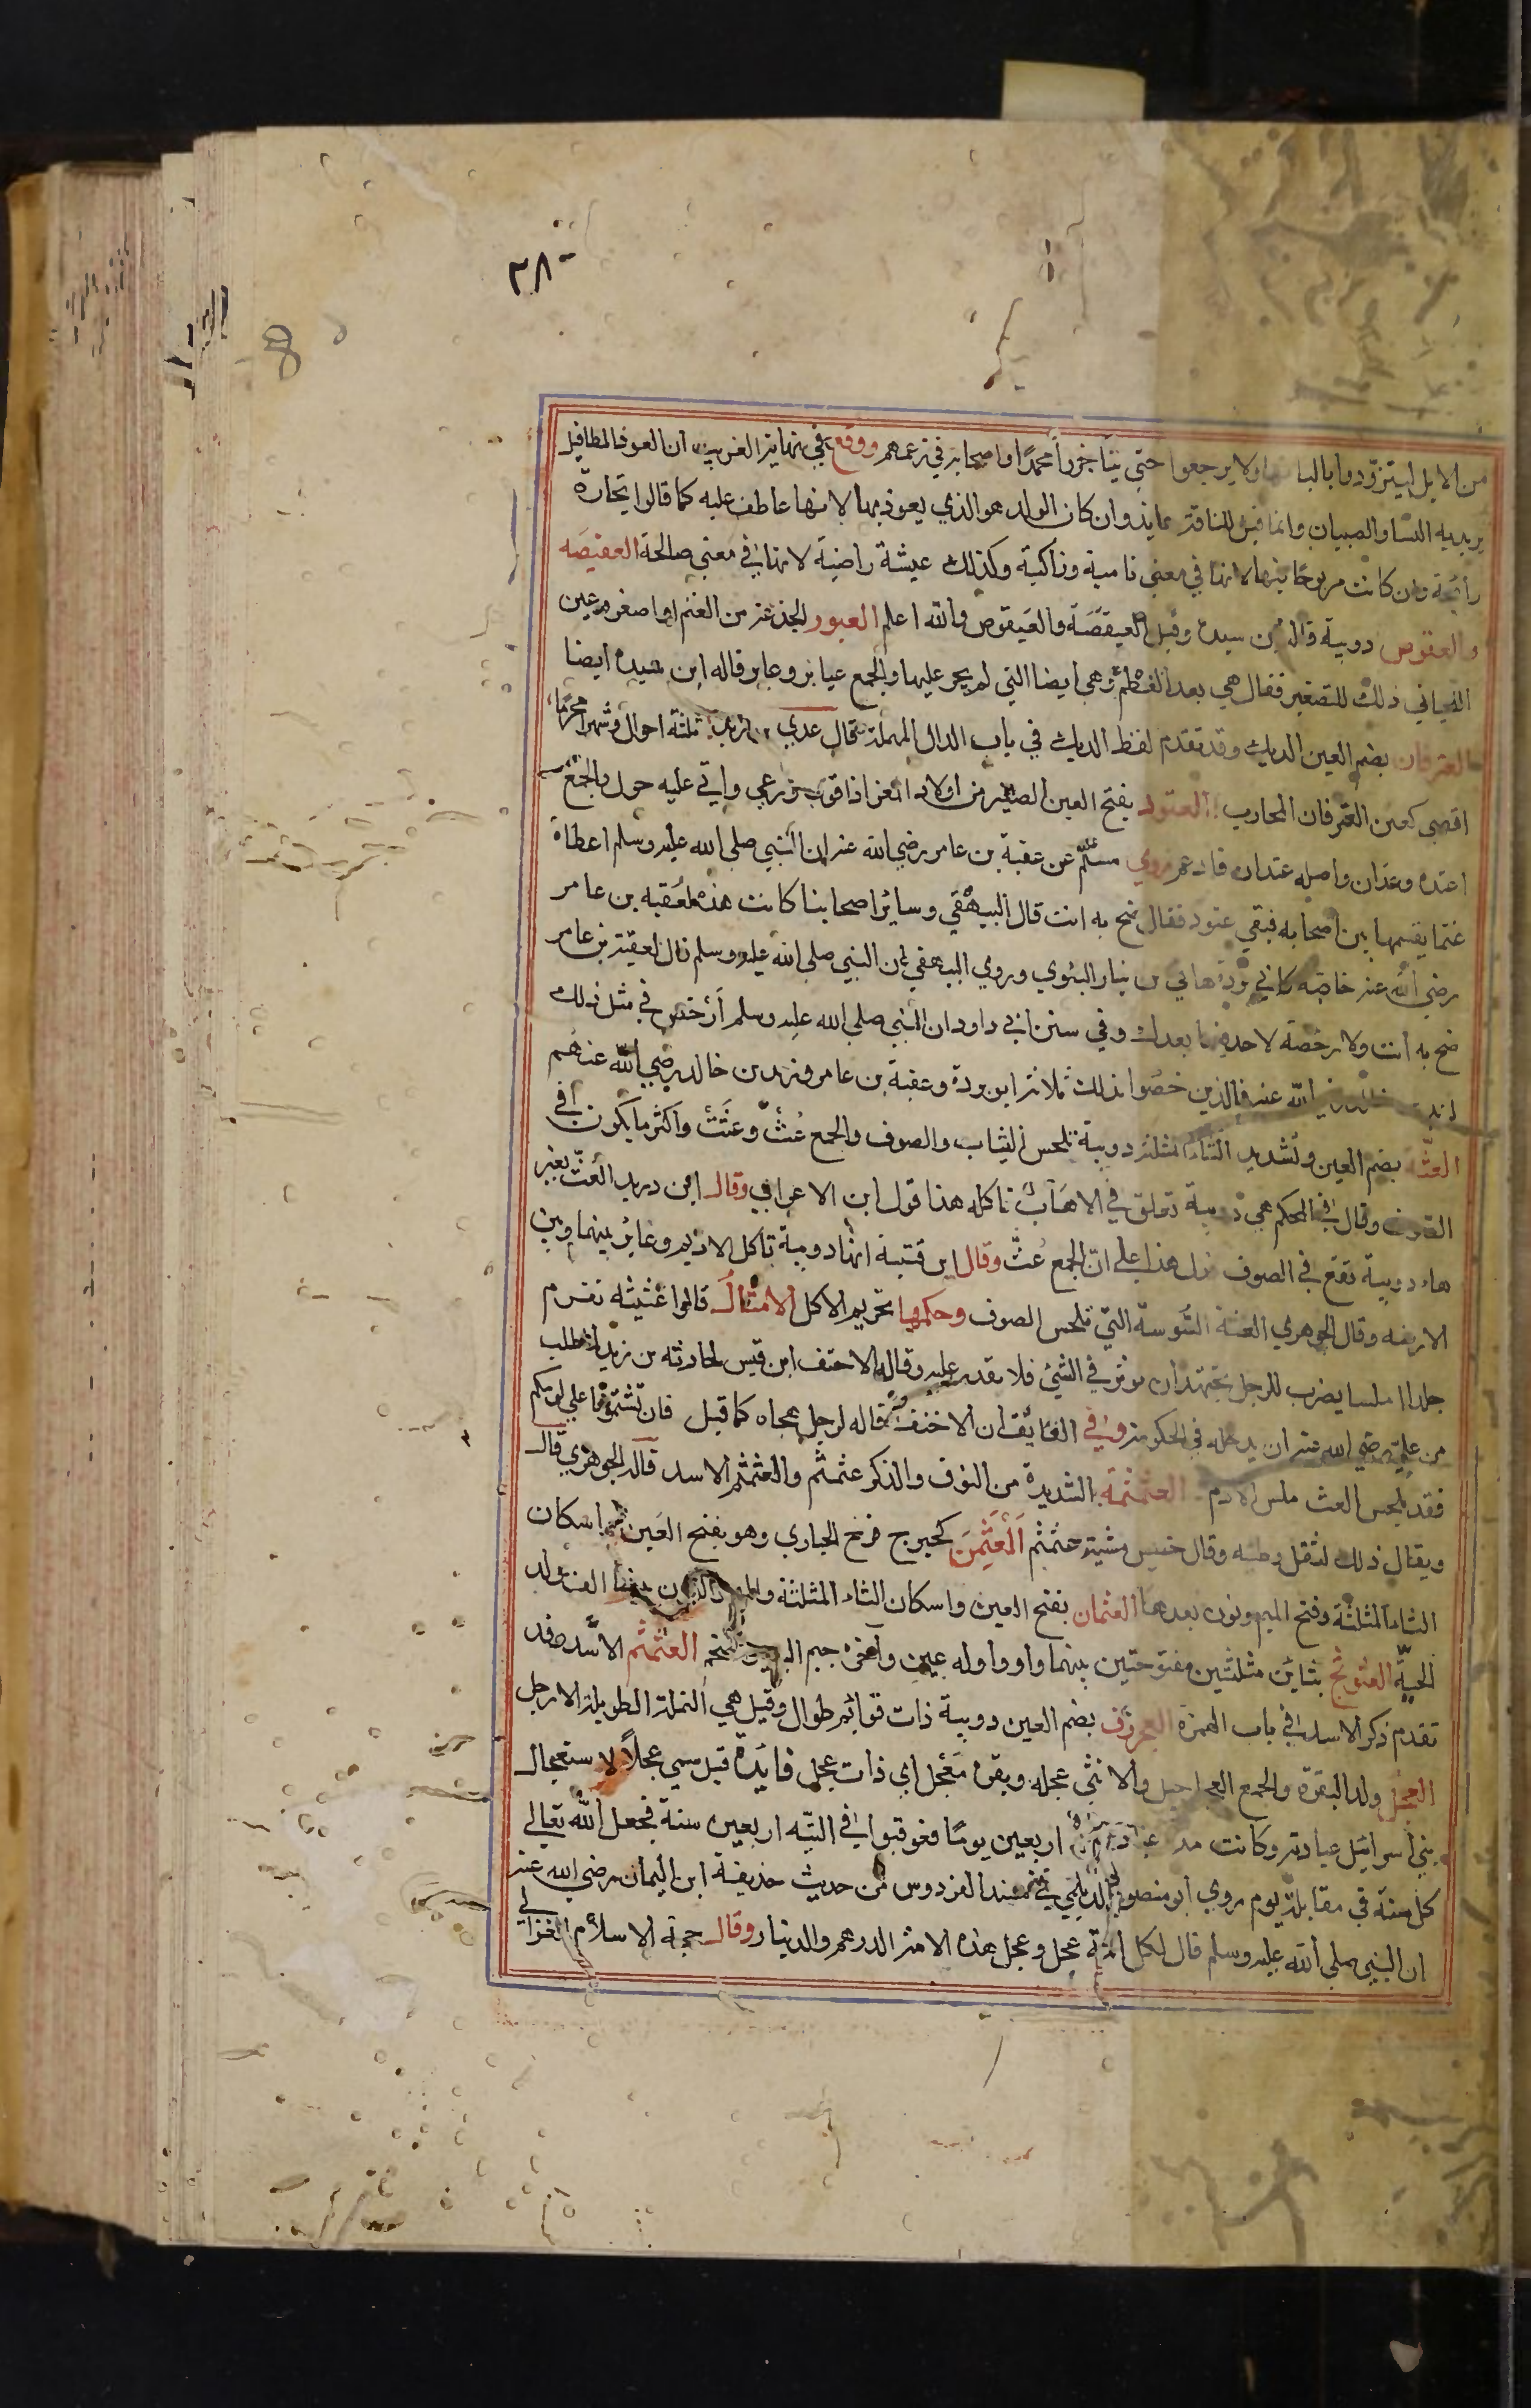 ٢٨٠
من الابل ليتزودوا بالبانها ولا يرجعوا حتى يناجزوا محمدا واصحابه في زعمهم ووقع في نهاية الغريب ان العوذ المطافيل
يريد به النسا والصبيان وانما قيل للناقة عايذ وان كان الولد هو الذي يعوذ بها لانها عاطف عليه كما قالوا تجارة
رابحة وان كانت مربوحا فيها لانها في معني نامية وزاكية وكذلك عيشة راضية لانها في معني صالحة العفيصه
والعقوص دويبة قاله بن سيده وقيل العيقصة والعيقوص والله اعلم العبور الجذعة من الغنم او اصغر وعين
اللحياني ذلك للتصغير فقال هي بعد الفطم وهي ايضا التي لم يجر عليها والجمع عبايز وعابر قاله ابن سيده ايضا
العترفان بضم العين الديك وقد تقدم لفظ الديك في باب الدال المهملة قال عدي بن زيد ثلثة احوال وشهرا محرما
اقصي كعين العترفان المحارب العتود بفتح العين الصغير من اولاد المعز اذا قوي ورعي واتي عليه حول والجمع
اعتدة وعدان واصله عتدان فادغم روي مسلم عن عقبة بن عامر رضي الله عنه ان النبي صلى الله عليه وسلم اعطاه
غنما يقسمها بين اصحابه فبقي عتود فقال ضح به انت قال البيهقي وساير اصحابنا كانت هذه لعقبه بن عامر
رضي الله عنه خاصة كابي بردة هاني بن نيار البلوي وروي البيهقي ان النبي صلى الله عليه وسلم قال لعقبة بن عامر
ضح به انت ولا رخصة لاحد فيها بعدك وفي سنن ابي داود ان النبي صلى الله عليه وسلم أرخص في مثل ذلك
لزيد بن خالد رضي الله عنه فالذين خصوا بذلك ثلاثة ابو بردة وعقبة بن عامر وزيد بن خالد رضي الله عنهم
العثة بضم العين وتشديد الثاء المثلثة دويبة تلحس الثياب والصوف والجمع عُثّ وعُثَث واكثر ما يكون في
الصوف وقال في المحكم هي دويبة تعلق في الاهاب تاكله هذا قول ابن الاعرابي وقال ابن دريد العث بغير
هاء دويبة تقع في الصوف فدل هذا على ان الجمع عُثّ وقال ابن قتيبة انها دويبة تاكل الاديم وغاير بينها وبين
الارضه وقال الجوهري العثة السوسة التي تلحس الصوف وحكمها تحريم الاكل الامثال قالوا عثيثه تقرم
جلدا املسا يضرب للرجل يجتهد ان يوثر في الشئ فلا يقدر عليه وقاله الاحنف ابن قيس لحارثه بن زيد لما طلب
من علي رضي الله عنه ان يدخله في الحكومة وفي الفايق ان الاحنف قاله لرجل هجاه كما قيل فان تشتمونا علي لومكم
فقد يلحس العث ملس الادم العثمثمة الشديدة من النوق والذكر عثمثم والعثمثم الاسد قاله الجوهري قال
ويقال ذلك لثقل وطيه وقال خبيس مشيته عثمثم المعثمن كحبرج فرخ الحباري وهو بفتح العين باسكان
الثاء المثلثة وفتح الميم ونون بعدها العثمان بفتح العين واسكان الثاء المثلثة ولد
الحية العثوثج بثاين مثلثتين مفتوحتين بينهما واو واوله عين وآخره جيم العثمثم الاسد وقد
تقدم ذكر الاسد في باب الهمزة العجروف بضم العين دويبة ذات قوائم طوال وقيل هي النملة الطويلة الارجل
العجل ولد البقرة والجمع العجاجيل والانثى عجله وبقرة معجل اي ذات عجل فايدة قيل سمي عجلا لاستعجال
بني اسرائيل عبادته وكانت مدة عبادتهم اربعين يوما فعوقبوا في التيه اربعين سنة فجعل الله تعالي
كل سنة في مقابلة يوم روي ابو منصور الديلمي في مسند الفردوس من حديث حذيفة ابن اليمان رضي الله عنه
ان النبي صلى الله عليه وسلم قال لكل امة عجل وعجل هذه الامة الدرهم والدينار وقال حجة الاسلام الغزالي